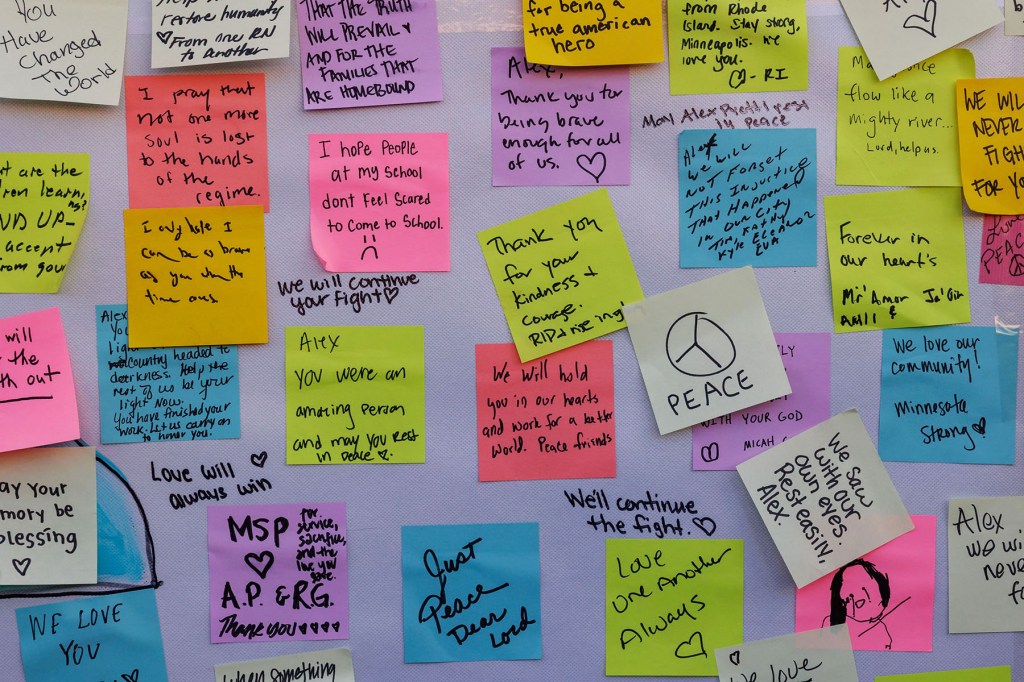 YOU
Have
Changed
The
World
restore humanity
♡ From one RN
to another
THAT THE TRUTH
WILL PREVAIL ♥
AND FOR THE
FAMILIES THAT
ARE HOMEBOUND
for being a
true american
hero
from Rhode
Island. Stay strong,
Minneapolis. We
love you.
♡ - RI
I pray that
not one more
soul is lost
to the hands
of the
regime.
I hope People
at my School
dont Feel Scared
to Come to School.
Alex,
Thank you for
being brave
enough for all
of us. ♡
May Alex Pretti rest
in peace
Alex
we will
NOT FORGET
THIS INJUSTICE
THAT HAPPENED
IN OUR CITY
flow like a
mighty river...
Lord, help us.
WE WILL
NEVER
FIGH
FOR YO
PEACE
at are the
learn
ND UP-
accept
from your
I only hope I
can be as brave
as you when the
time comes.
we will continue
your fight ♡
Thank you
for your
kindness +
courage.
Forever in
our heart's
PEACE
WITH YOUR GOD
MICAH
We love our
community!
Minnesota
Strong ♥
will
the
th out
Alex
Country headed to
darkness. Help the
rest of us be your
light Now.
You have finished your
work. Let us carry on
to honor you.
Alex
you were an
amazing person
and may you rest
in peace ♡.
We will hold
you in our hearts
and work for a better
World. Peace friends
We saw
with our
own eyes.
Rest easily,
Alex.
Love will ♡
always win
ay your
mory be
blessing
♡
MSP
♡
A.P. & R.G.
for
service,
sacrifice,
and the
love you
gave.
Thank you ♥♥♥♥
Just
Peace
Dear
Lord
We'll continue
the fight. ♡
Love
One Another
Always
♡
Alex
we wi
neve
fo
WE LOVE
YOU
When something
we love